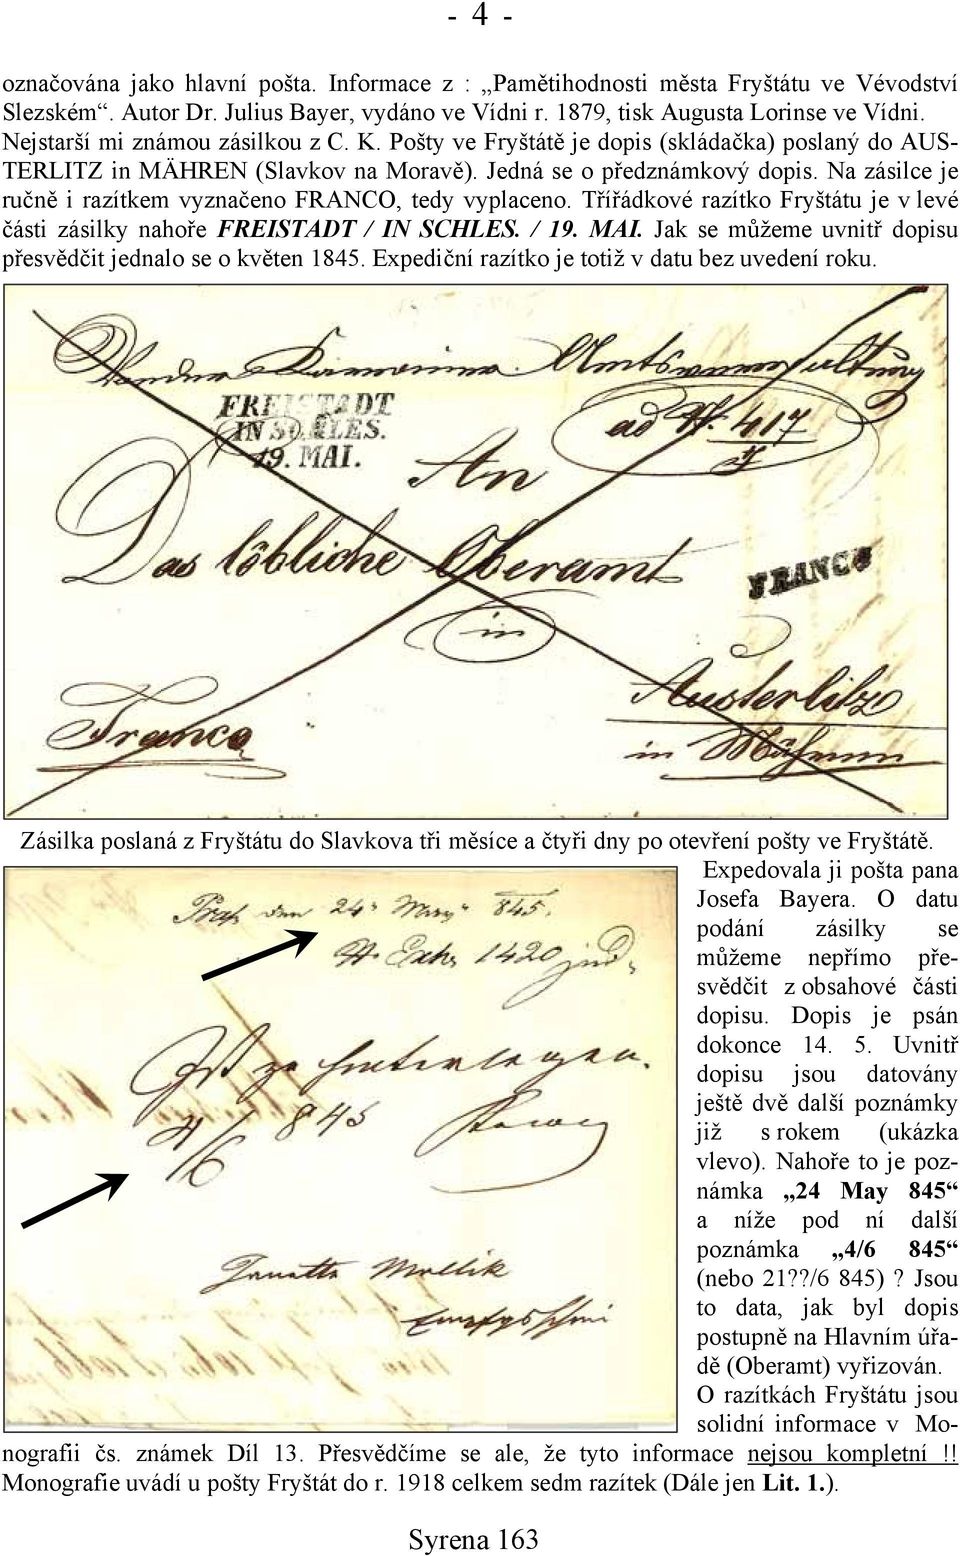 - 4 -
označována jako hlavní pošta. Informace z : „Pamětihodnosti města Fryštátu ve Vévodství
Slezském“. Autor Dr. Julius Bayer, vydáno ve Vídni r. 1879, tisk Augusta Lorinse ve Vídni.
Nejstarší mi známou zásilkou z C. K. Pošty ve Fryštátě je dopis (skládačka) poslaný do AUS-
TERLITZ in MÄHREN (Slavkov na Moravě). Jedná se o předznámkový dopis. Na zásilce je
ručně i razítkem vyznačeno FRANCO, tedy vyplaceno. Třířádkové razítko Fryštátu je v levé
části zásilky nahoře FREISTADT / IN SCHLES. / 19. MAI. Jak se můžeme uvnitř dopisu
přesvědčit jednalo se o květen 1845. Expediční razítko je totiž v datu bez uvedení roku.
FREISTADT
IN SCHLES.
19. MAI.
ad N. 417
An
Das löbliche Oberamt
FRANCO
in
Austerlitz
Franco
in Mähren
Zásilka poslaná z Fryštátu do Slavkova tři měsíce a čtyři dny po otevření pošty ve Fryštátě.
Expedovala ji pošta pana
Josefa Bayera. O datu
podání zásilky se
můžeme nepřímo pře-
svědčit z obsahové části
dopisu. Dopis je psán
dokonce 14. 5. Uvnitř
dopisu jsou datovány
ještě dvě další poznámky
již s rokem (ukázka
vlevo). Nahoře to je poz-
námka „24 May 845“
a níže pod ní další
poznámka „4/6 845“
(nebo 21??/6 845) ? Jsou
to data, jak byl dopis
postupně na Hlavním úřa-
dě (Oberamt) vyřizován.
O razítkách Fryštátu jsou
solidní informace v Mo-
den 24" May" 845.
1420 jud.
4/6 845
nografii čs. známek Díl 13. Přesvědčíme se ale, že tyto informace nejsou kompletní !!
Monografie uvádí u pošty Fryštát do r. 1918 celkem sedm razítek (Dále jen Lit. 1.).
Syrena 163